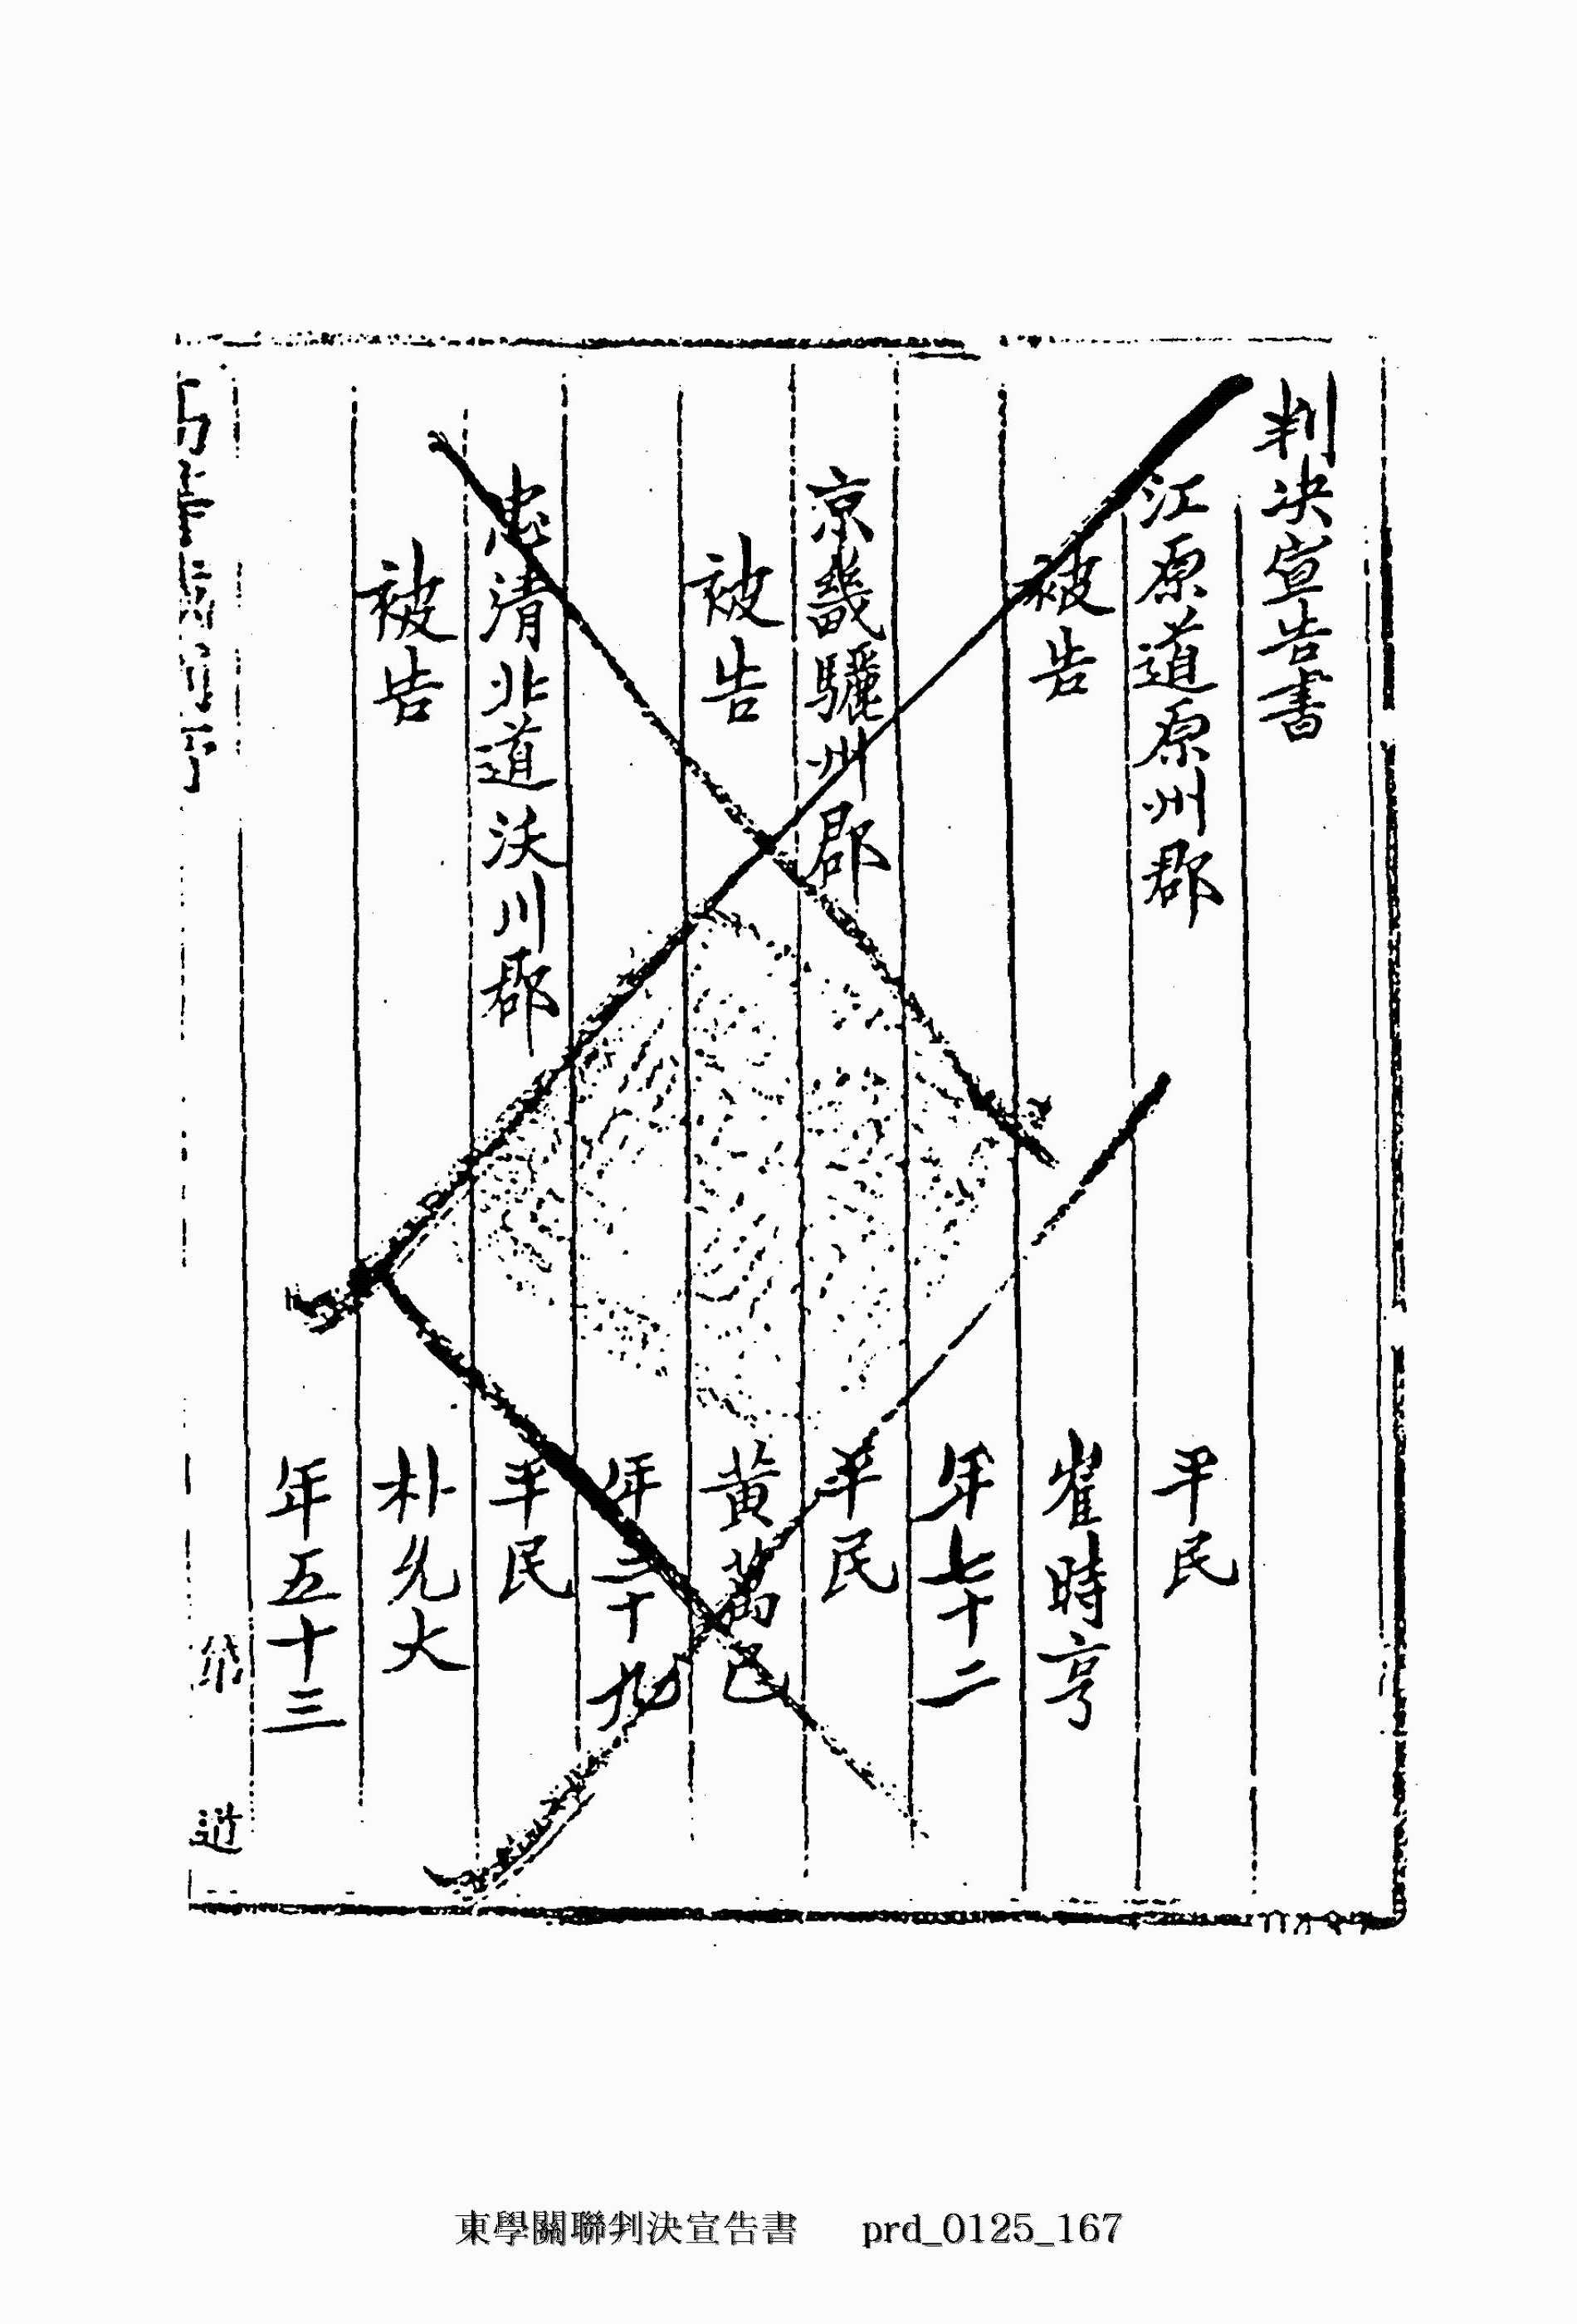 判決宣告書
江原道原州郡 平民
被告 崔時亨
年七十二
京畿驪州郡 平民
被告 黃萬己
年三十九
忠清北道沃川郡 平民
被告 朴允大
年五十三
東學關聯判決宣告書 prd_0125_167